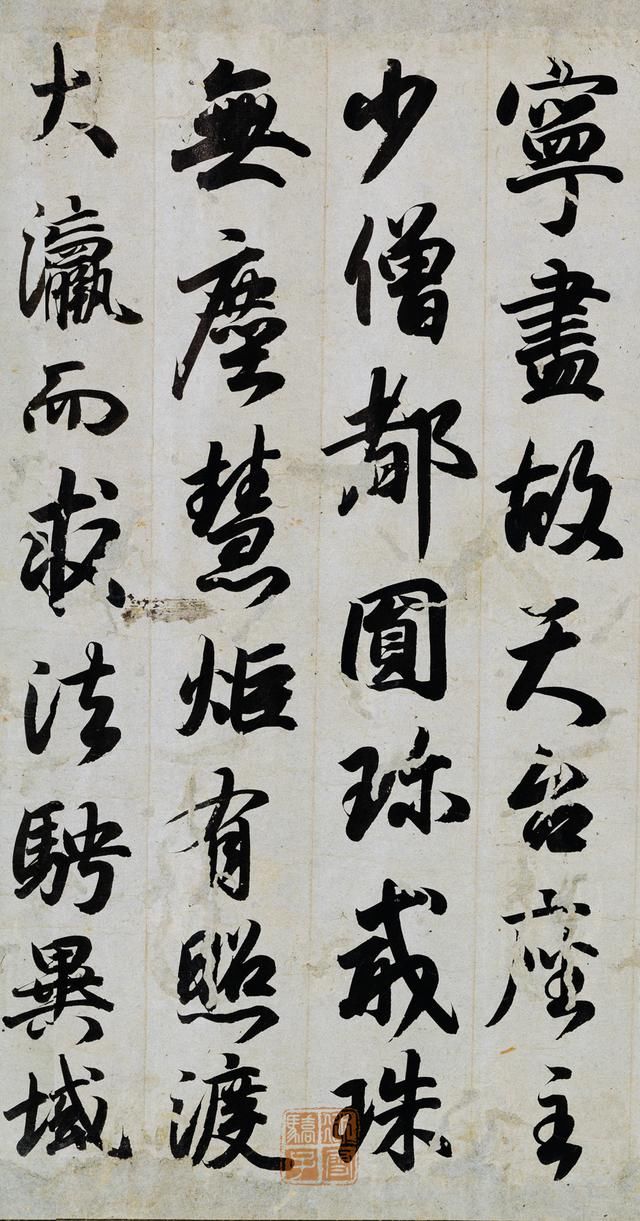 寧盡故天台座主
少僧都圓珎戒珠
無塵慧炬有照渡
大瀛而求法騁異域